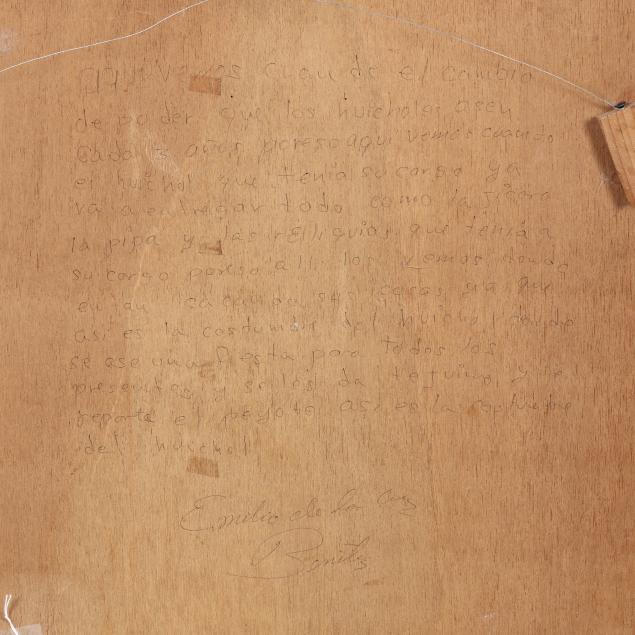 Aqui Vemos cuando el cambio
de poder que los huicholes asen
cada años poreso aqui vemos cuando
el huichol que tenia su cargo ya
va a entregar todo como la
la pipa y las reliquias que tenia a
su cargo poreso alli los vemos donde
cosas ya que
asi es la costumbre del huichol cuando
se ase una fiesta para todos los
presentes y se les da tejuino y se
reparte el peyote asi es la costumbre
del huichol
Emilio de la Cruz
Benitez